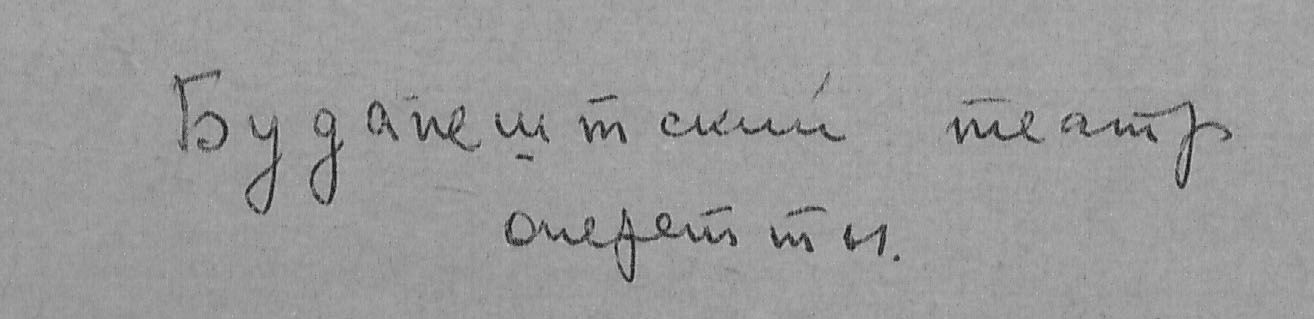 Будапештский театр
оперетты.